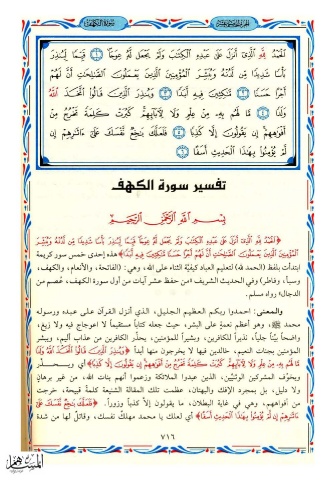 الجزء الخامس عشر
سورة الكهف
الْحَمْدُ لِلَّهِ الَّذِي أَنْزَلَ عَلَى عَبْدِهِ الْكِتَابَ وَلَمْ يَجْعَلْ لَهُ عِوَجًا ۝١ قَيِّمًا لِيُنْذِرَ
بَأْسًا شَدِيدًا مِنْ لَدُنْهُ وَيُبَشِّرَ الْمُؤْمِنِينَ الَّذِينَ يَعْمَلُونَ الصَّالِحَاتِ أَنَّ لَهُمْ
أَجْرًا حَسَنًا ۝٢ مَاكِثِينَ فِيهِ أَبَدًا ۝٣ وَيُنْذِرَ الَّذِينَ قَالُوا اتَّخَذَ اللَّهُ
وَلَدًا ۝٤ مَا لَهُمْ بِهِ مِنْ عِلْمٍ وَلَا لِآبَائِهِمْ كَبُرَتْ كَلِمَةً تَخْرُجُ مِنْ
أَفْوَاهِهِمْ إِنْ يَقُولُونَ إِلَّا كَذِبًا ۝٥ فَلَعَلَّكَ بَاخِعٌ نَفْسَكَ عَلَى آثَارِهِمْ إِنْ
لَمْ يُؤْمِنُوا بِهَذَا الْحَدِيثِ أَسَفًا ۝٦
تفسير سورة الكهف
بِسْمِ اللَّهِ الرَّحْمَنِ الرَّحِيمِ
﴿الْحَمْدُ لِلَّهِ الَّذِي أَنْزَلَ عَلَى عَبْدِهِ الْكِتَابَ وَلَمْ يَجْعَلْ لَهُ عِوَجًا قَيِّمًا لِيُنْذِرَ بَأْسًا شَدِيدًا مِنْ لَدُنْهُ وَيُبَشِّرَ
الْمُؤْمِنِينَ الَّذِينَ يَعْمَلُونَ الصَّالِحَاتِ أَنَّ لَهُمْ أَجْرًا حَسَنًا مَاكِثِينَ فِيهِ أَبَدًا﴾ هذه إحدى خمس سور كريمة
ابتدأت بلفظ (الحمد لله) لتعليم العباد كيفيّة الثناء على الله، وهي: (الفاتحة، والأنعام، والكهف،
وسبأ، وفاطر) وفي الحديث الشريف (من حفظ عشر آيات من أول سورة الكهف، عُصم من
الدجال) رواه مسلم.
والمعنى: احمدوا ربكم العظيم الجليل، الذي أنزل القرآن على عبده ورسوله
محمد ﷺ، وهو أعظم نعمةٍ على البشر، حيث جعله كتاباً مستقيماً لا اعوجاج فيه ولا زيغ،
واضحاً بيّناً جلياً، نذيراً للكافرين، وبشيراً للمؤمنين، يحذّر الكافرين من عذاب أليم، ويبشر
المؤمنين بجنات النعيم، خالدين فيها لا يخرجون منها أبداً ﴿وَيُنْذِرَ الَّذِينَ قَالُوا اتَّخَذَ اللَّهُ وَلَدًا
مَا لَهُمْ بِهِ مِنْ عِلْمٍ وَلَا لِآبَائِهِمْ كَبُرَتْ كَلِمَةً تَخْرُجُ مِنْ أَفْوَاهِهِمْ إِنْ يَقُولُونَ إِلَّا كَذِبًا﴾ أي ويحذر
ويخوّف المشركين الوثنيّين، الذين عبدوا الملائكة وزعموا أنهم بنات الله، من غير برهانٍ
ولا دليل، بل بمجرد الإفك والبهتان، عظمت تلك المقالة الشنيعة كلمةً قبيحة، خرجت
من أفواههم، وهي في غاية البطلان، ما يقولون إلاّ كذباً وزوراً. ﴿فَلَعَلَّكَ بَاخِعٌ نَفْسَكَ عَلَى
آثَارِهِمْ إِنْ لَمْ يُؤْمِنُوا بِهَذَا الْحَدِيثِ أَسَفًا﴾ أي لعلك يا محمد مهلكٌ نفسك، وقاتلٌ لها من شدة
٧١٦